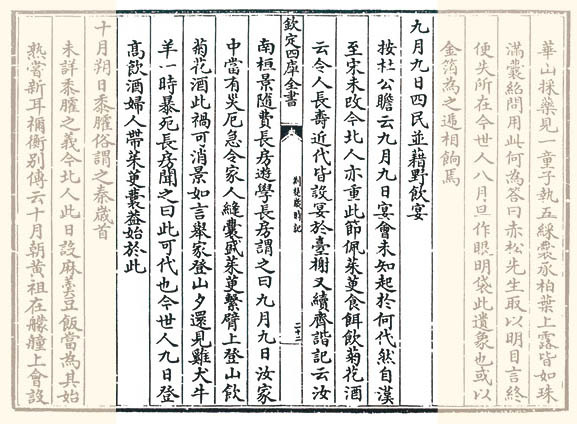 華山採藥見一童子執五綵囊承柏葉上露皆如珠
滿囊紹問用此何為答曰赤松先生取以明目言終
便失所在今世人八月旦作眼明袋此遺象也或以
金箔為之遞相餉焉
九月九日四民並藉野飲宴
按杜公瞻云九月九日宴會未知起於何代然自漢
至宋未改今北人亦重此節佩茱萸食餌飲菊花酒
云令人長壽近代皆設宴於臺榭又續齊諧記云汝
欽定四庫全書
荆楚歲時記
二十二
南桓景隨費長房遊學長房謂之曰九月九日汝家
中當有災厄急令家人縫囊盛茱萸繫臂上登山飲
菊花酒此禍可消景如言舉家登山夕還見雞犬牛
羊一時暴死長房聞之曰此可代也今世人九日登
高飲酒婦人帶茱萸囊葢始於此
十月朔日黍臛俗謂之秦歲首
未詳黍臛之義今北人此日設麻羹豆飯當為其始
熟嘗新耳禰衡别傳云十月朝黄祖在艨艟上會設